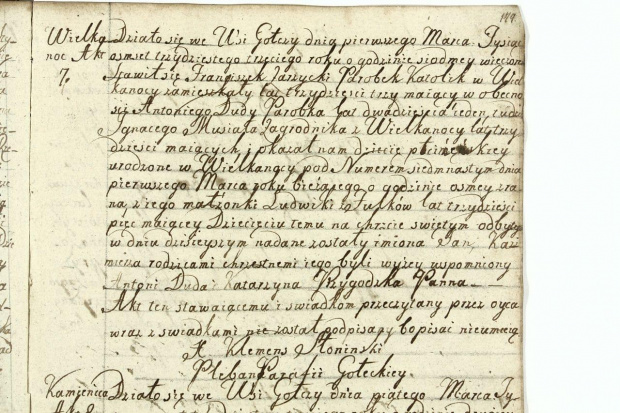 149.
Wielka Działo się we Wsi Gołczy dnia pierwszego Marca Tysiąc
noc Akt ośmset trzydziestego trzeciego roku o godzinie siodmey wieczorem
7. Stawił się Franciszek Jarzycki Parobek Katolik w Wiel
kanocy zamieszkały lat trzydzieści trzy maiący w obecno
ści Antoniego Dudy Parobka lat dwadzieścia ieden, tudzież
Ignacego Musiała Zagrodnika z Wielkanocy lat trzy
dzieści maiących, i okazał nam dziecię płci męskiey
urodzone w Wielkanocy pod Numerem siedmnastym dnia
pierwszego Marca roku bieżącego o godzinie osmey zra
na, z iego małżonki Ludwiki z Tułków lat trzydzieści
pięć maiącey Dziecięciu temu na chrzcie świętym odbytym
w dniu dzisieyszym nadane zostały imiona Jan, Kaź
mierz rodzicami chrzestnemi iego byli wyżey wspomniony
Antoni Duda i Katarzyna Przygodzka Panna
Akt ten stawaiącemu i świadkom przeczytany przez oyca
wraz z świadkami nie został podpisany bo pisać nieumieią
X. Klemens Słoninski
Pleban Parafii Gołeckiey.
Kamienica Działo się we Wsi Gołczy dnia piątego Marca Ty
Akt 8.